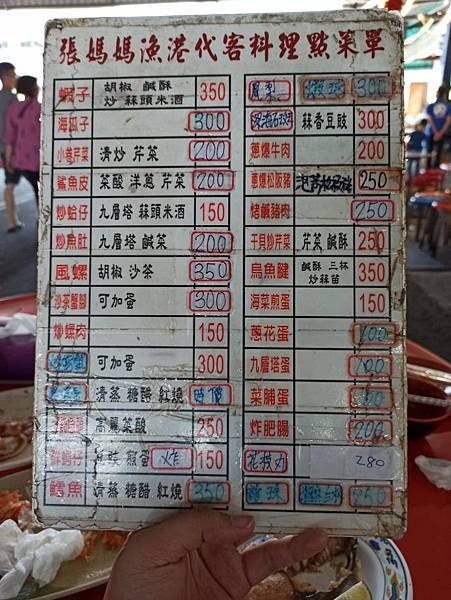 張媽媽漁港代客料理點菜單
蝦子 胡椒 鹹酥 炒 蒜頭米酒 350
海瓜子 300
小卷芹菜 清炒 芹菜 200
鯊魚皮 菜酸 洋蔥 芹菜 200
炒蛤仔 九層塔 蒜頭米酒 150
炒魚肚 九層塔 鹹菜 200
風螺 胡椒 沙茶 350
沙茶蟹腳 可加蛋 300
炒螺肉 150
可加蛋 300
清蒸 糖醋 紅燒 時價
高麗菜酸 250
鮮蚵仔 豆豉 煎蛋 炸 150
鱈魚 清蒸 糖醋 紅燒 350
鳳梨 蝦球 300
蒜香豆豉 300
蔥爆牛肉 200
蔥爆松阪豬 250
烤鹹豬肉 250
干貝炒芹菜 芹菜 鹹酥 250
烏魚腱 鹹酥 三杯 炒蒜苗 350
海菜煎蛋 150
蔥花蛋 100
九層塔蛋 100
菜脯蛋
炸肥腸 200
花枝丸 280